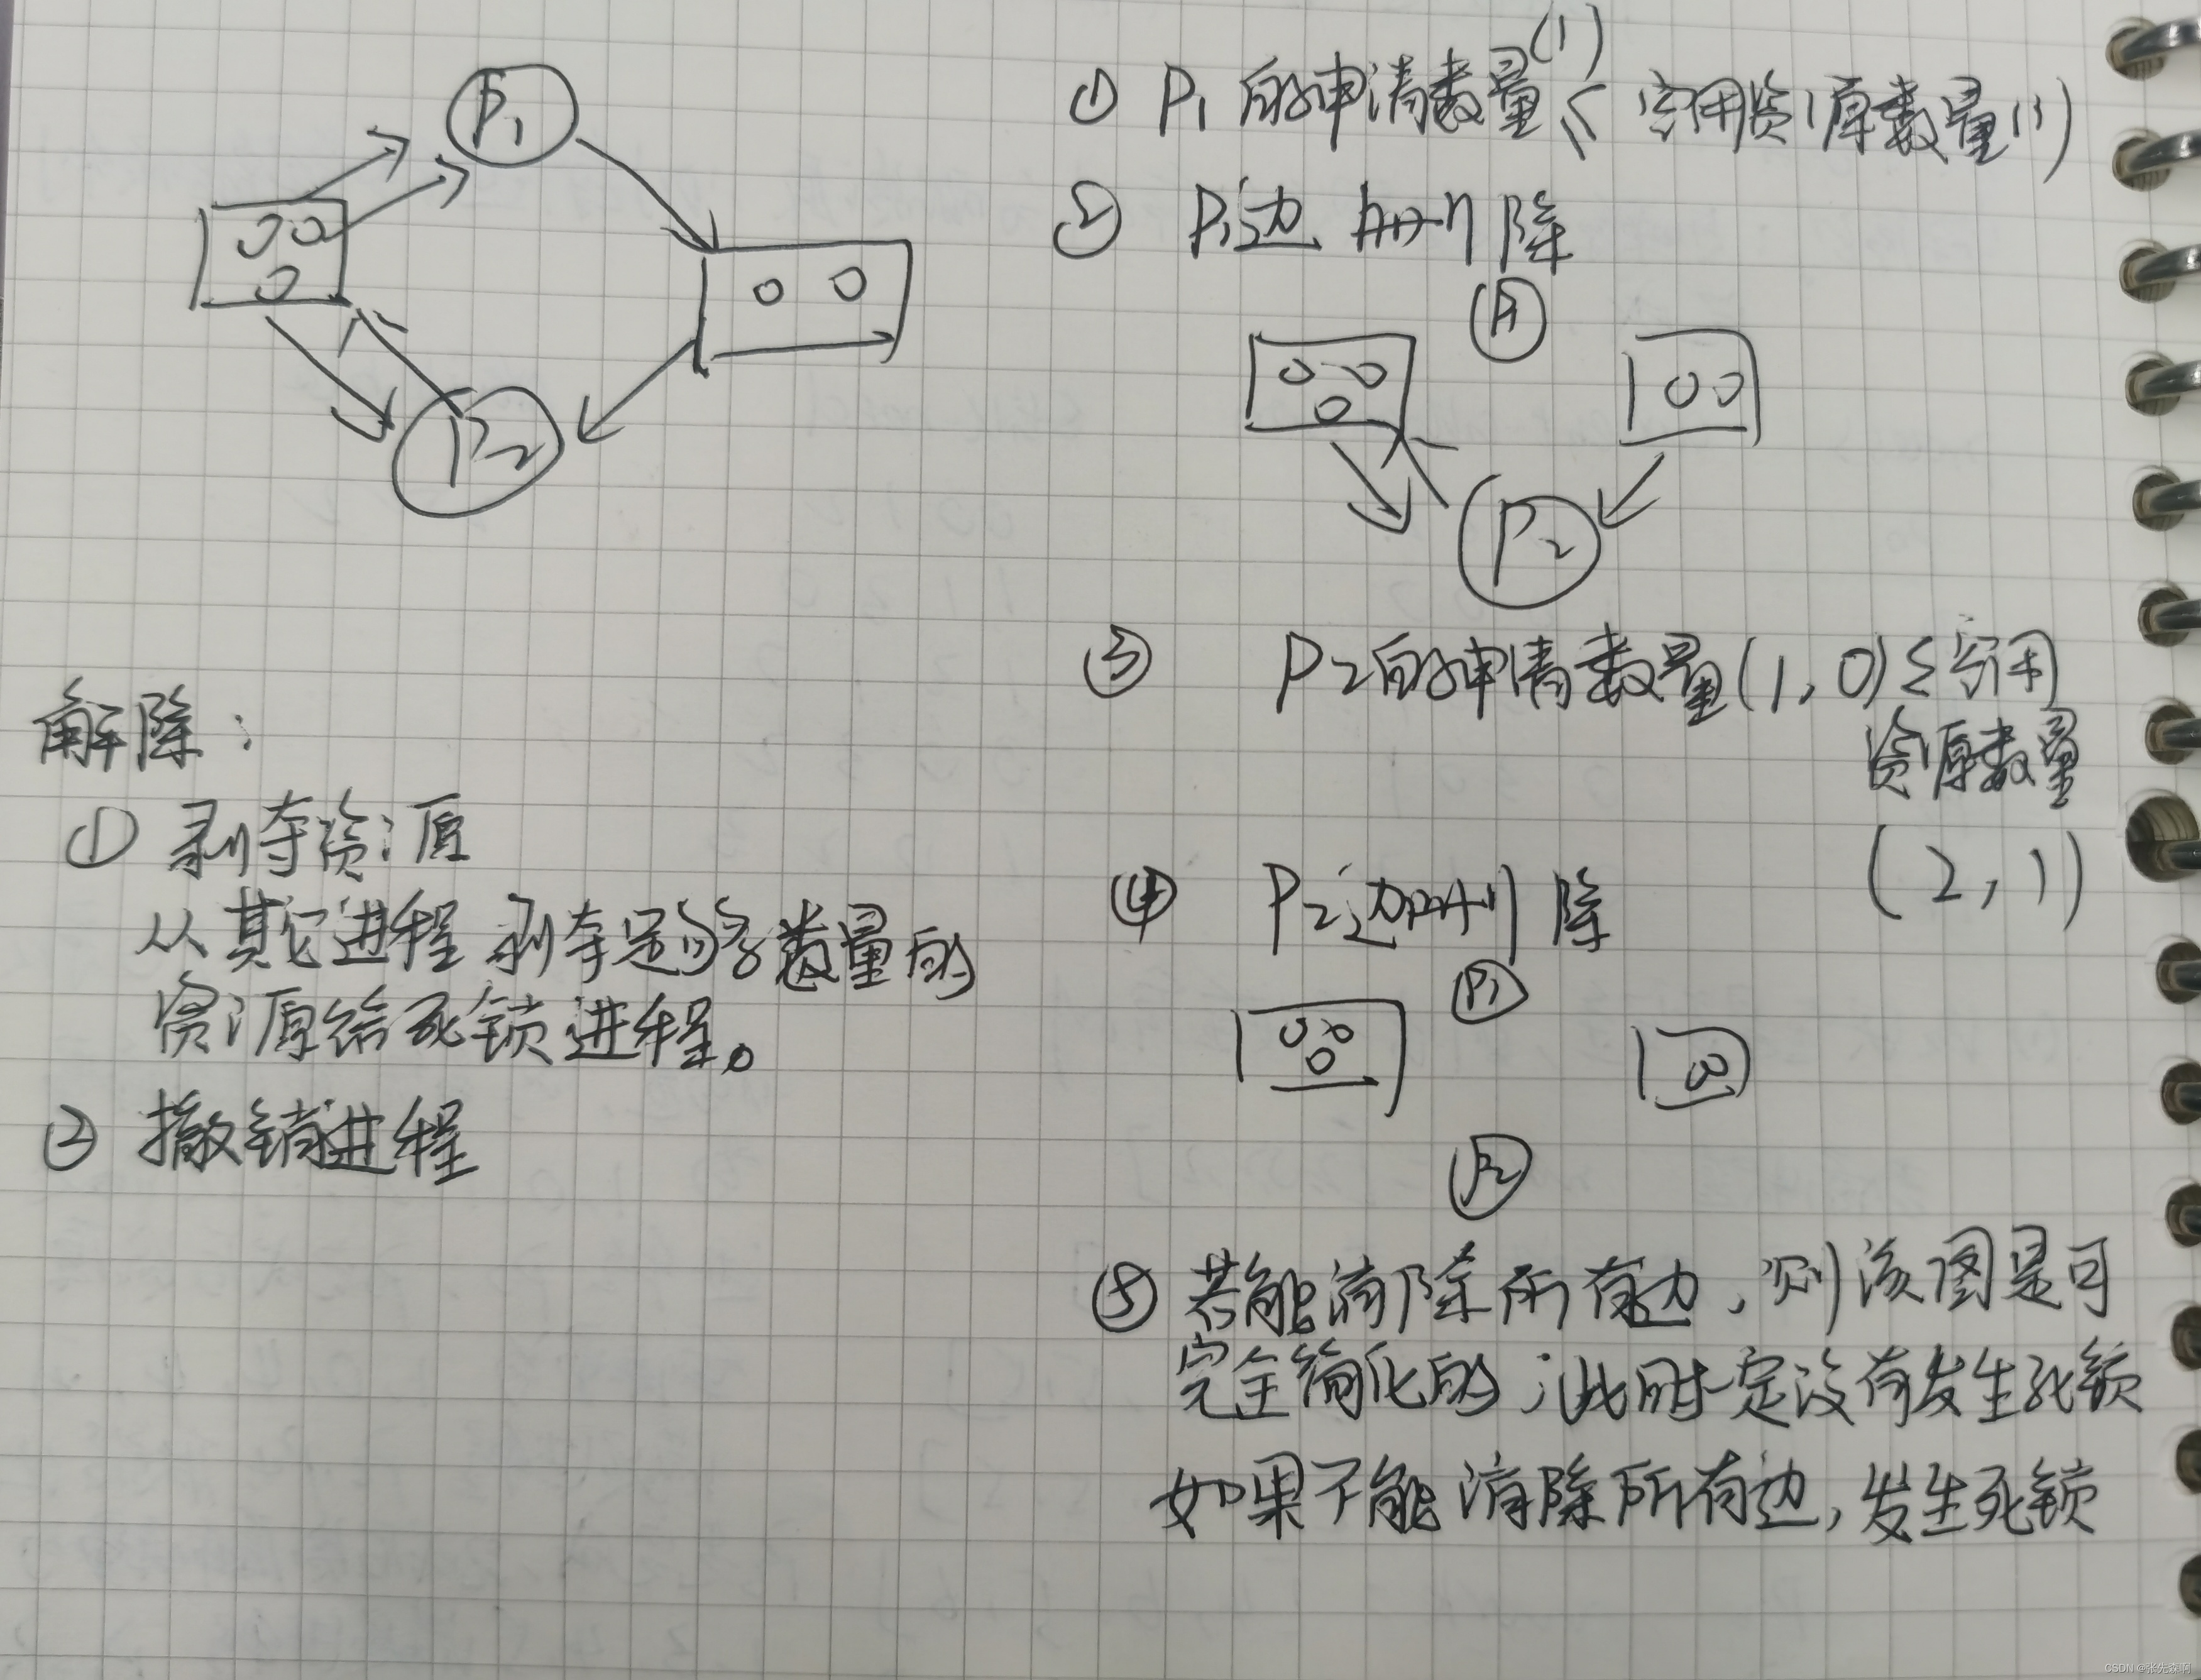 P1
P2
解除:
① 剥夺资源
从其它进程剥夺足够数量的
资源给死锁进程。
② 撤销进程
① P1的申请数量(1)≤空闲资源数量(1)
② P1边删除
P1
P2
③ P2的申请数量(1,0)≤空闲
资源数量
(2,1)
④ P2边删除
P1
P2
⑤ 若能消除所有边,则该图是可
完全简化的;此时一定没有发生死锁
如果不能消除所有边,发生死锁
CSDN @张先森啊